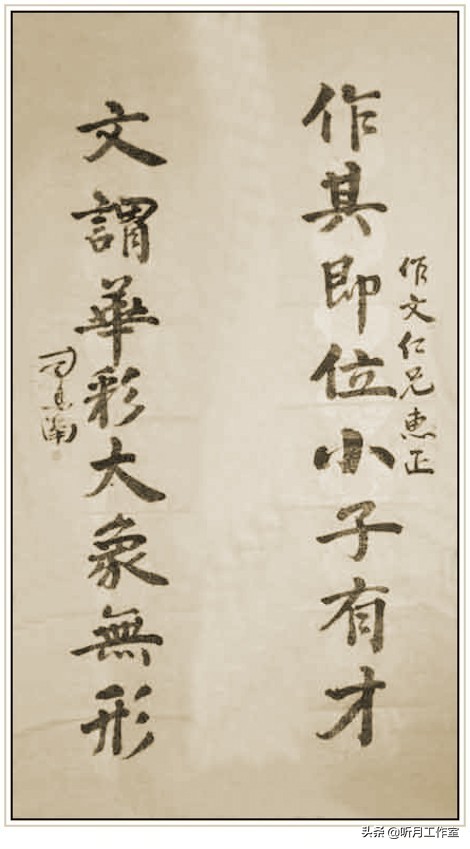 作文仁兄惠正
作其即位小子有才
文謂華彩大象無形
头条 @听月工作室